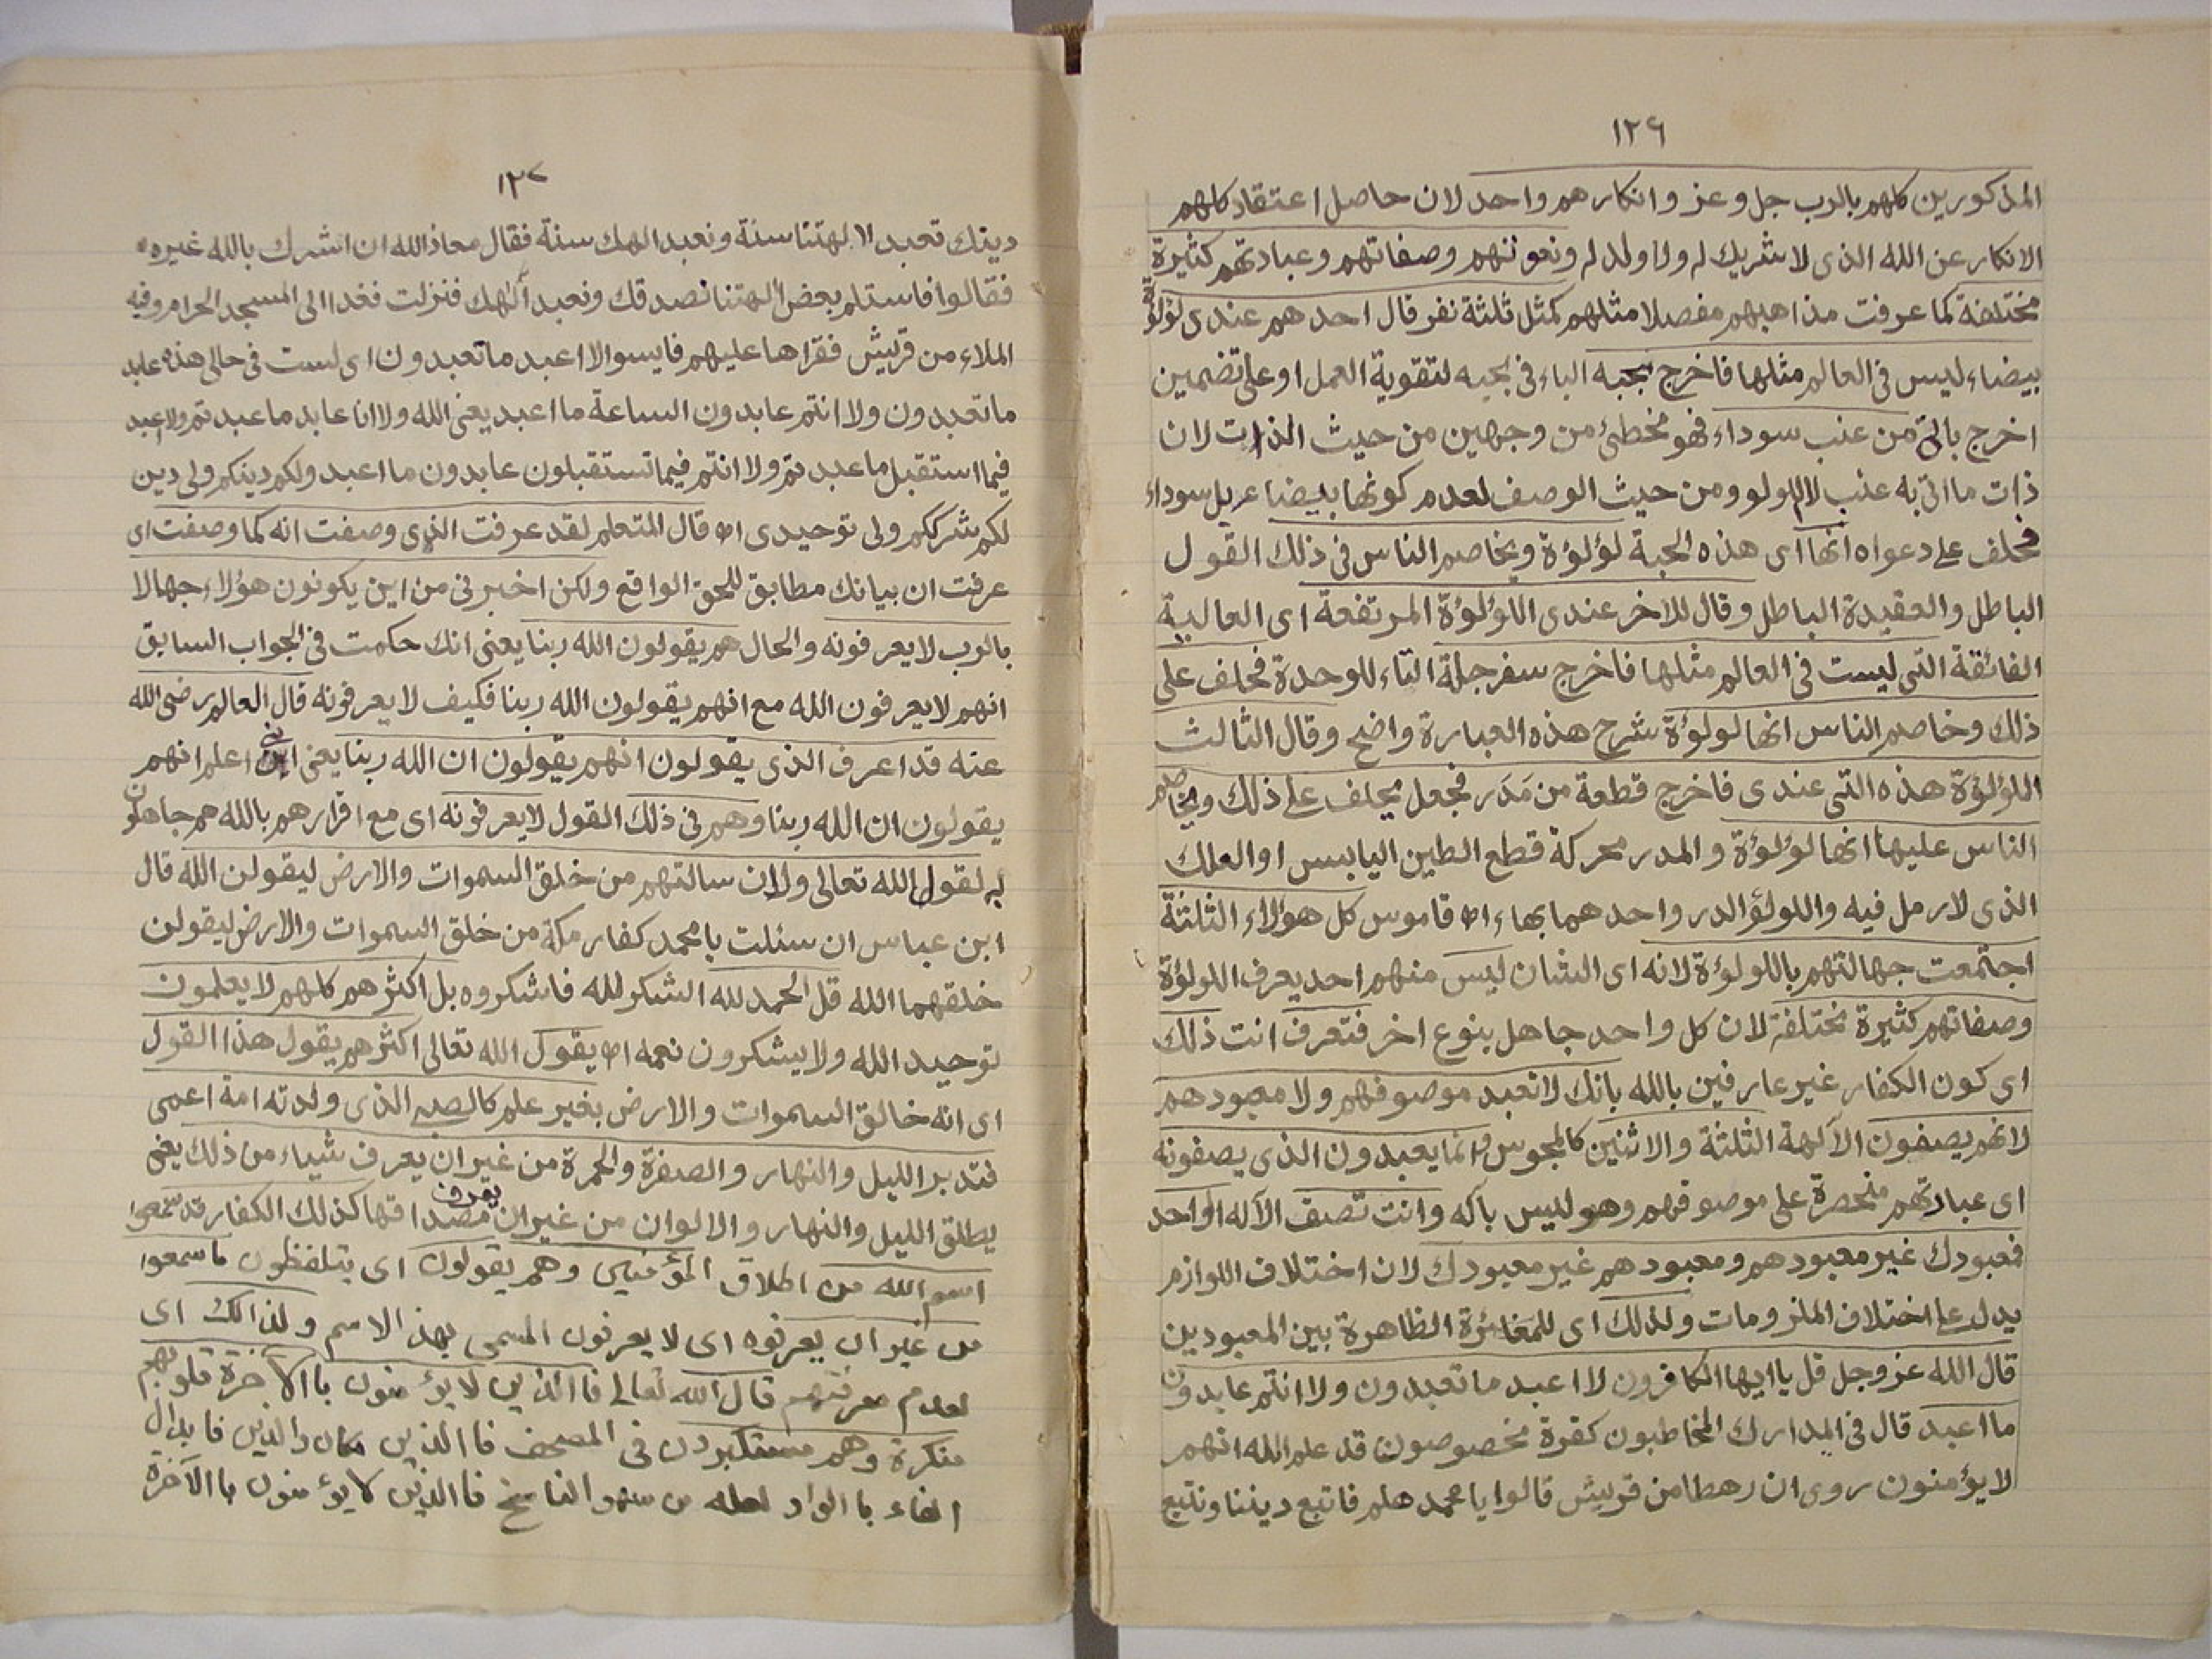 ١٢٦
المذكورين كلهم بالرب جل وعز وانكارهم واحد لان حاصل اعتقاد كلهم
الانكار عن الله الذى لا شريك له ولا ولد له ونعوتهم وصفاتهم وعبادتهم كثيرة
مختلفة كما عرفت مذاهبهم مفصلا مثلهم كمثل ثلثة نفر قال احدهم عندى لؤلؤة
بيضاء ليس فى العالم مثلها فاخرج بحبه الباء فى بحبه لتقوية العمل او على تضمين
اخرج بالتى من عنب سوداء فهو مخطئ من وجهين من حيث الذات لان
ذات ما اتى به عنب لا اللولو ومن حيث الوصف لعدم كونها بيضاء بل سوداء
فحلف على دعواه انها اى هذه الحبة لؤلؤة ويخاصم الناس فى ذلك القول
الباطل والعقيدة الباطل وقال للاخر عندى اللؤلؤة المرتفعة اى العالية
الفائقة التى ليست فى العالم مثلها فاخرج سفرجلة التاء للوحدة فحلف على
ذلك وخاصم الناس انها لولوة شرح هذه العبارة واضح وقال الثالث
اللؤلؤة هذه التى عندى فاخرج قطعة من مَدَر فجعل يحلف على ذلك ويخاصم
الناس عليها انها لؤلؤة والمدر محركة قطع الطين اليابس او العلك
الذى لا رمل فيه واللولؤ الدر واحدهما بهاء اه قاموس كل هؤلاء الثلثة
اجتمعت جهالتهم باللولوة لانه اى الشان ليس منهم احد يعرف اللولوة
وصفاتهم كثيرة مختلفة لان كل واحد جاهل بنوع اخر فتعرف انت ذلك
اى كون الكفار غير عارفين بالله بانك لا تعبد موصوفهم ولا معبودهم
لانهم يصفون الآلهة الثلثة والاثنين كالمجوس وانما يعبدون الذى يصفونه
اى عبادتهم منحصرة على موصوفهم وهو لليس بآله وانت تصف الآله الواحد
فمعبودك غير معبودهم ومعبودهم غير معبودك لان اختلاف اللوازم
يدل على اختلاف الملزومات ولذلك اى للمغائرة الظاهرة بين المعبودين
قال الله عز وجل قل يا ايها الكافرون لا اعبد ما تعبدون ولا انتم عابدون
ما اعبد قال فى المدارك المخاطبون كفرة مخصوصون قد علم الله انهم
لا يؤمنون روى ان رهطا من قريش قالوا يا محمد هلم فاتبع ديننا ونتبع
١٢٧
دينك تعبد الهتنا سنة ونعبد الهك سنة فقال معاذ الله ان اشرك بالله غيره
فقالوا فاستلم بعض الهتنا نصدقك ونعبد آلهك فنزلت فغدا الى المسجد الحرام وفيه
الملاء من قريش فقراها عليهم فايسوا لا اعبد ما تعبدون اى لست فى حالى هذه عابد
ما تعبدون ولا انتم عابدون الساعة ما اعبد يعنى الله ولا انا عابد ما عبدتم ولا اعبد
فيما استقبل ما عبدتم ولا انتم فيما تستقبلون عابدون ما اعبد ولكم دينكم ولى دين
لكم شرككم ولى توحيدى اه قال المتعلم لقد عرفت الذى وصفت انه كما وصفت اى
عرفت ان بيانك مطابق للحق الواقع ولكن اخبرنى من اين يكونون هؤلاء جهالا
بالرب لا يعرفونه والحال هم يقولون الله ربنا يعنى انك حكمت فى الجواب السابق
انهم لا يعرفون الله مع انهم يقولون الله ربنا فكيف لا يعرفونه قال العالم رضى الله
عنه قد اعرف الذى يقولون انهم يقولون ان الله ربنا يعنى انى اعلم انهم
يقولون ان الله ربنا وهم فى ذلك القول لا يعرفونه اى مع اقرارهم بالله هم جاهلون
به لقول الله تعالى ولان سالتهم من خلق السموات والارض ليقولن الله قال
ابن عباس ان سئلت يا محمد كفار مكة من خلق السموات والارض ليقولن
خلقهما الله قل الحمد لله الشكر لله فاشكروه بل اكثرهم كلهم لا يعلمون
توحيد الله ولا يشكرون نعمه اه يقول الله تعالى اكثرهم يقول هذا القول
اى انه خالق السموات والارض بغير علم كالصبى الذى ولدته امه اعمى
فتدبر الليل والنهار والصفرة والحمرة من غير ان يعرف شيئاء من ذلك يعنى
يطلق الليل والنهار والالوان من غير ان يعرف مصداقها كذلك الكفار قد سمعوا
اسم الله من اطلاق المؤمنين وهم يقولون اى يتلفظون ما سمعوا
من غير ان يعرفوه اى لا يعرفون المسمى بهذ الاسم ولذالك اى
لعدم معرفتهم قال الله تعالى فاالذين لا يؤمنون باالآخرة قلوبهم
منكرة وهم مستكبرون فى المصحف فاالذين مكان والذين فابدال
الفاء باالواو لعله من سهو الناسخ فاالذين لا يؤمنون باالآخرة